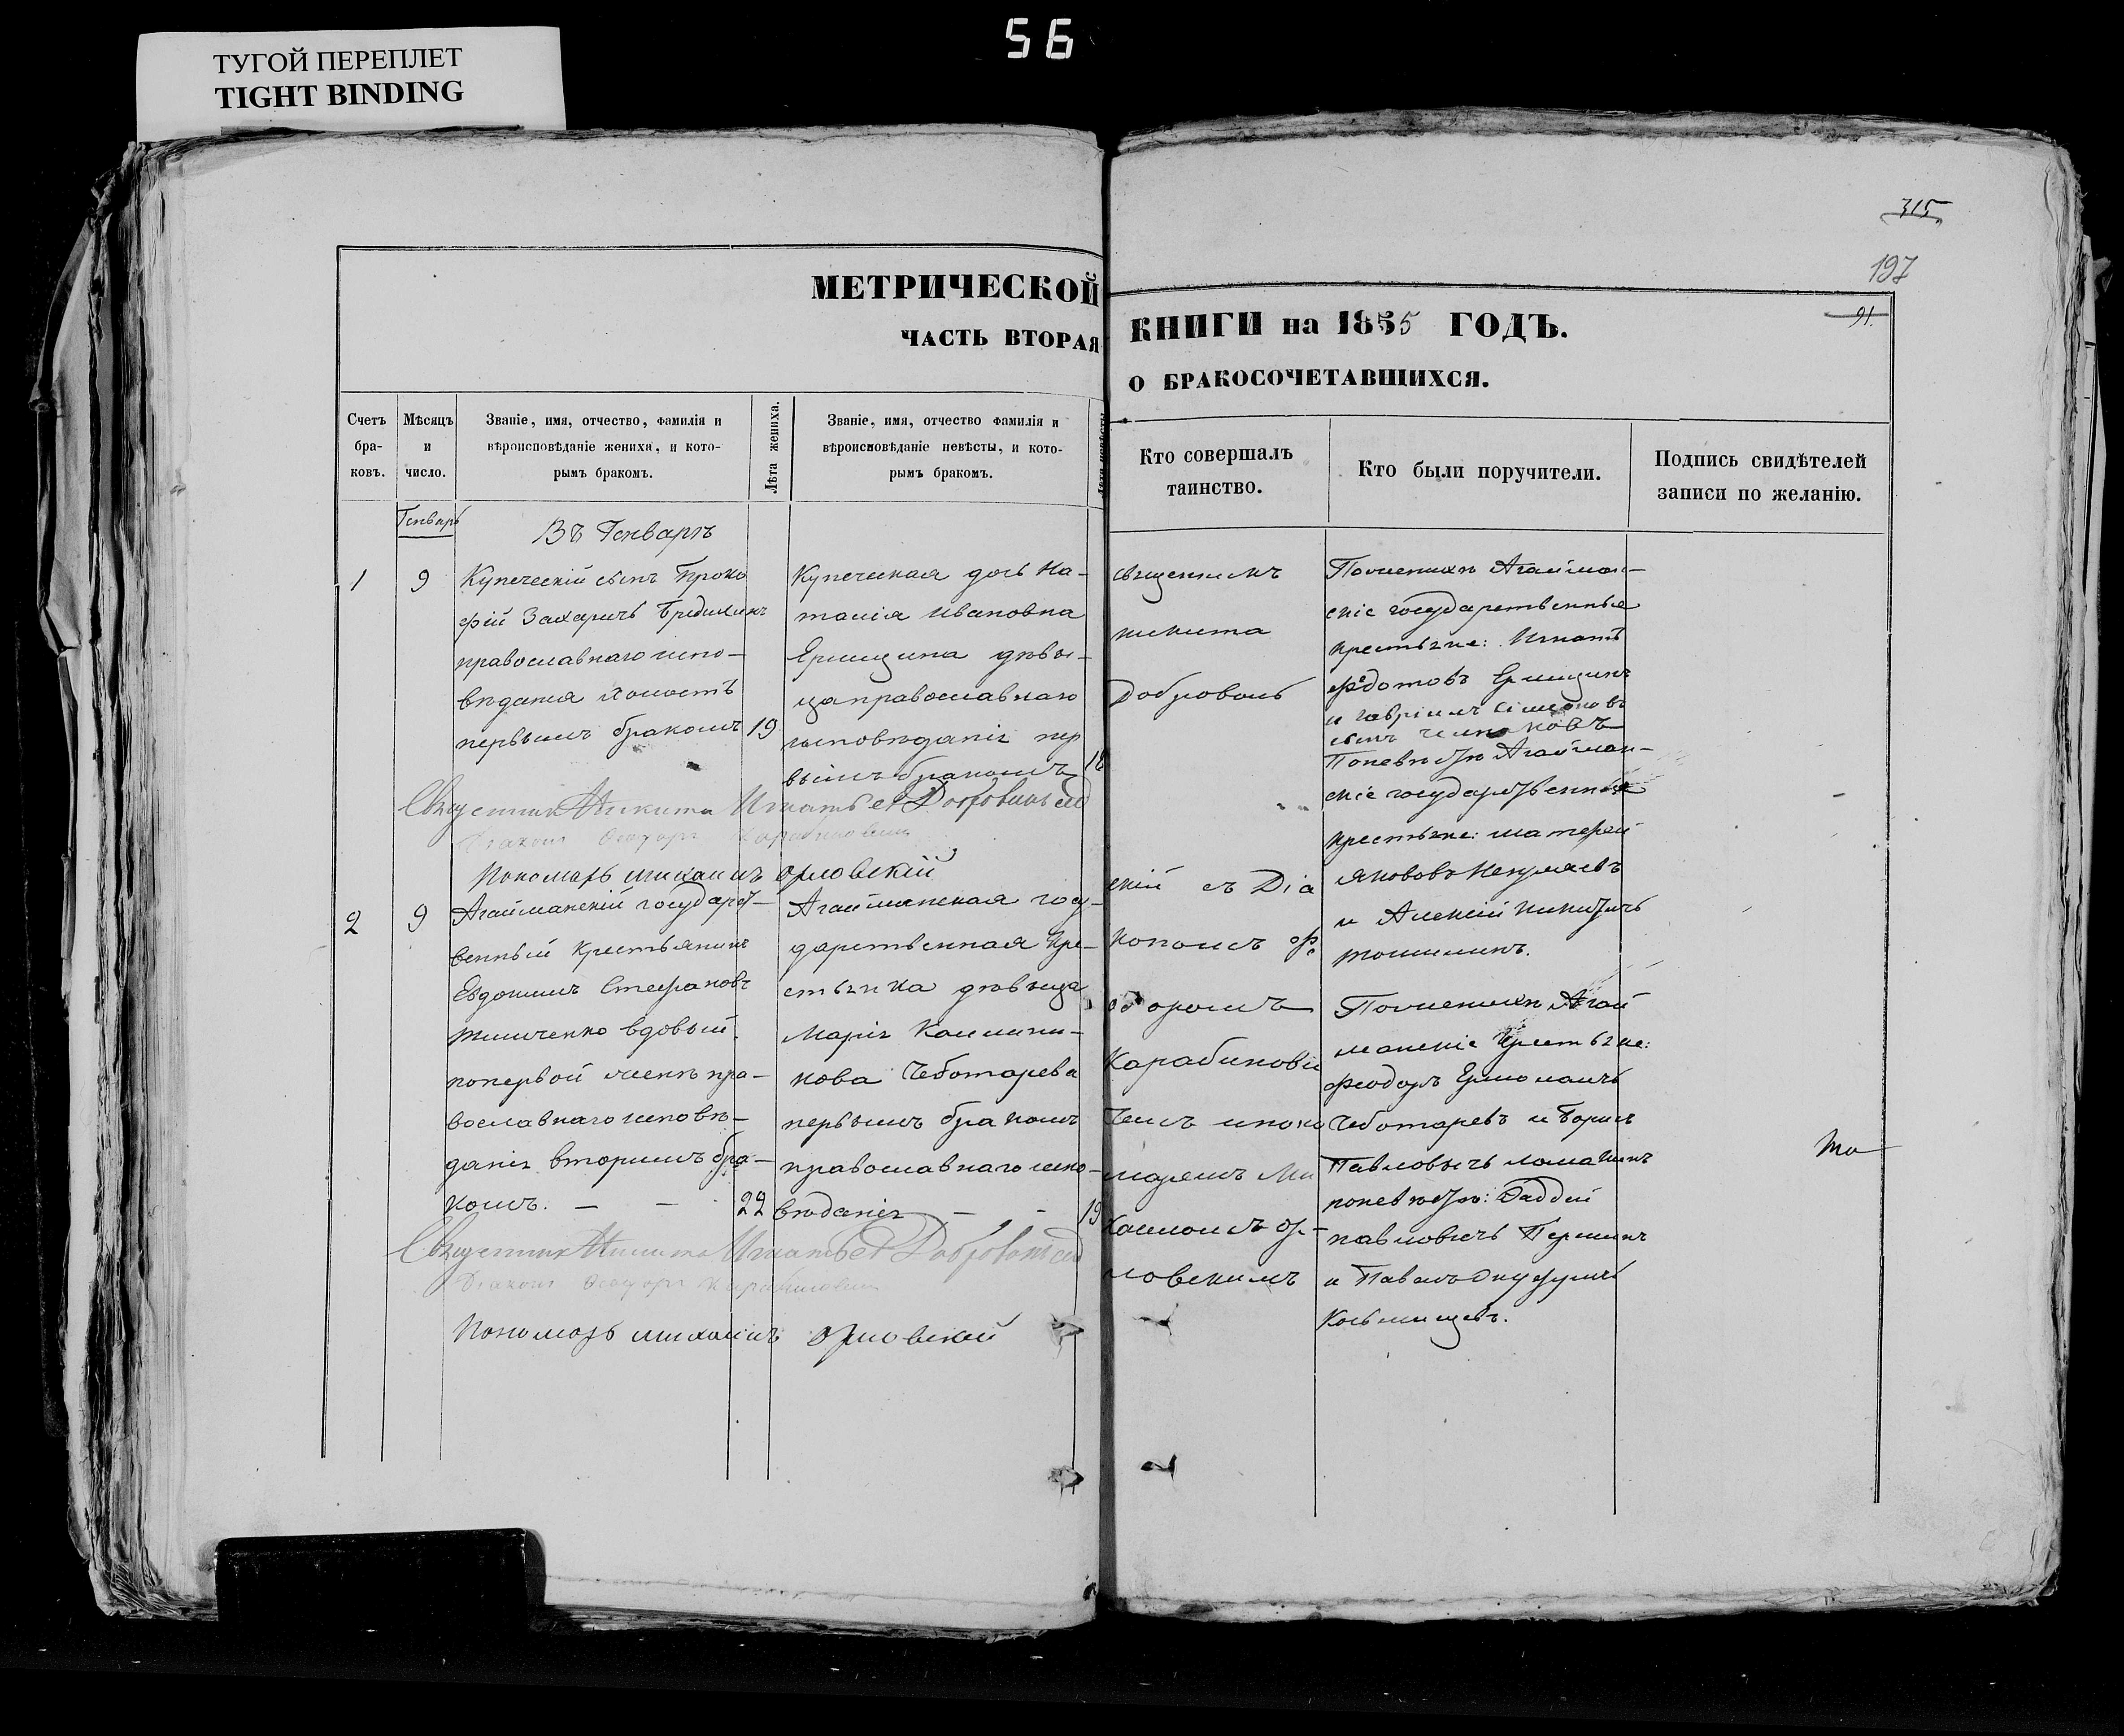 56
ТУГОЙ ПЕРЕПЛЕТ
TIGHT BINDING
315
197
91.
МЕТРИЧЕСКОЙ
ЧАСТЬ ВТОРАЯ
КНИГИ на 1855 ГОДЪ.
О БРАКОСОЧЕТАВШИХСЯ.
Счетъ
бра-
ковъ.
Мѣсяцъ
и
число.
Званіе, имя, отчество, фамилія и
вѣроисповѣданіе жениха, и кото-
рымъ бракомъ.
Лѣта жениха.
Званіе, имя, отчество фамилія и
вѣроисповѣданіе невѣсты, и кото-
рымъ бракомъ.
Лѣта невѣсты
Кто совершалъ
таинство.
Кто были поручители.
Подпись свидѣтелей
записи по желанію.
Генварь
Въ Генварѣ
1
9
Купеческій сынъ Проко
фій Захаричь
православнаго испо-
вѣданія холостъ
первымъ бракомъ
19
Купеческая дочь На-
талія Ивановна
Ермицина дѣви-
ца православнаго
исповѣданія пер
вымъ бракомъ
18
Священникъ
Никита
Доброволь
По женихѣ Агайман-
скіе государственныя
крестьяне: Игнатъ
Федотовъ Ермицинъ
и Гавріилъ Симеоновъ
сынъ
По невѣстѣ Агайман-
скіе государственныя
крестьяне:
Якововъ
и Алексій Никитичь
Священникъ Никита Игнатьев Доброволь
Діаконъ Феодоръ Карабиновичь
Пономарь Михаилъ Орловскій
2
9
Агайманскій государст-
венный крестьянинъ
Евдокимъ Стефановъ
Тимченко вдовый
по первой женѣ пра-
вославнаго исповѣ-
данія вторымъ бра-
комъ. — —
22
Агайманская госу-
дарственная кре-
стьянка дѣвица
Марія Калинни-
кова Чеботарева
первымъ бракомъ
православнаго испо-
вѣданія — -
19
скій съ Діа
кономъ Фе
одоромъ
Карабинови
чемъ и поно
маремъ Ми
хаиломъ Ор-
ловскимъ
По женихѣ Агай
манскіе крестьяне:
Феодоръ
Чеботаревъ и Борисъ
Павловичь
по невѣстѣ: Фаддей
Павловичь
и Павелъ
Священникъ Никита Игнатьев Доброволь
Діаконъ Феодоръ Карабиновичь
Пономарь Михаилъ Орловскій